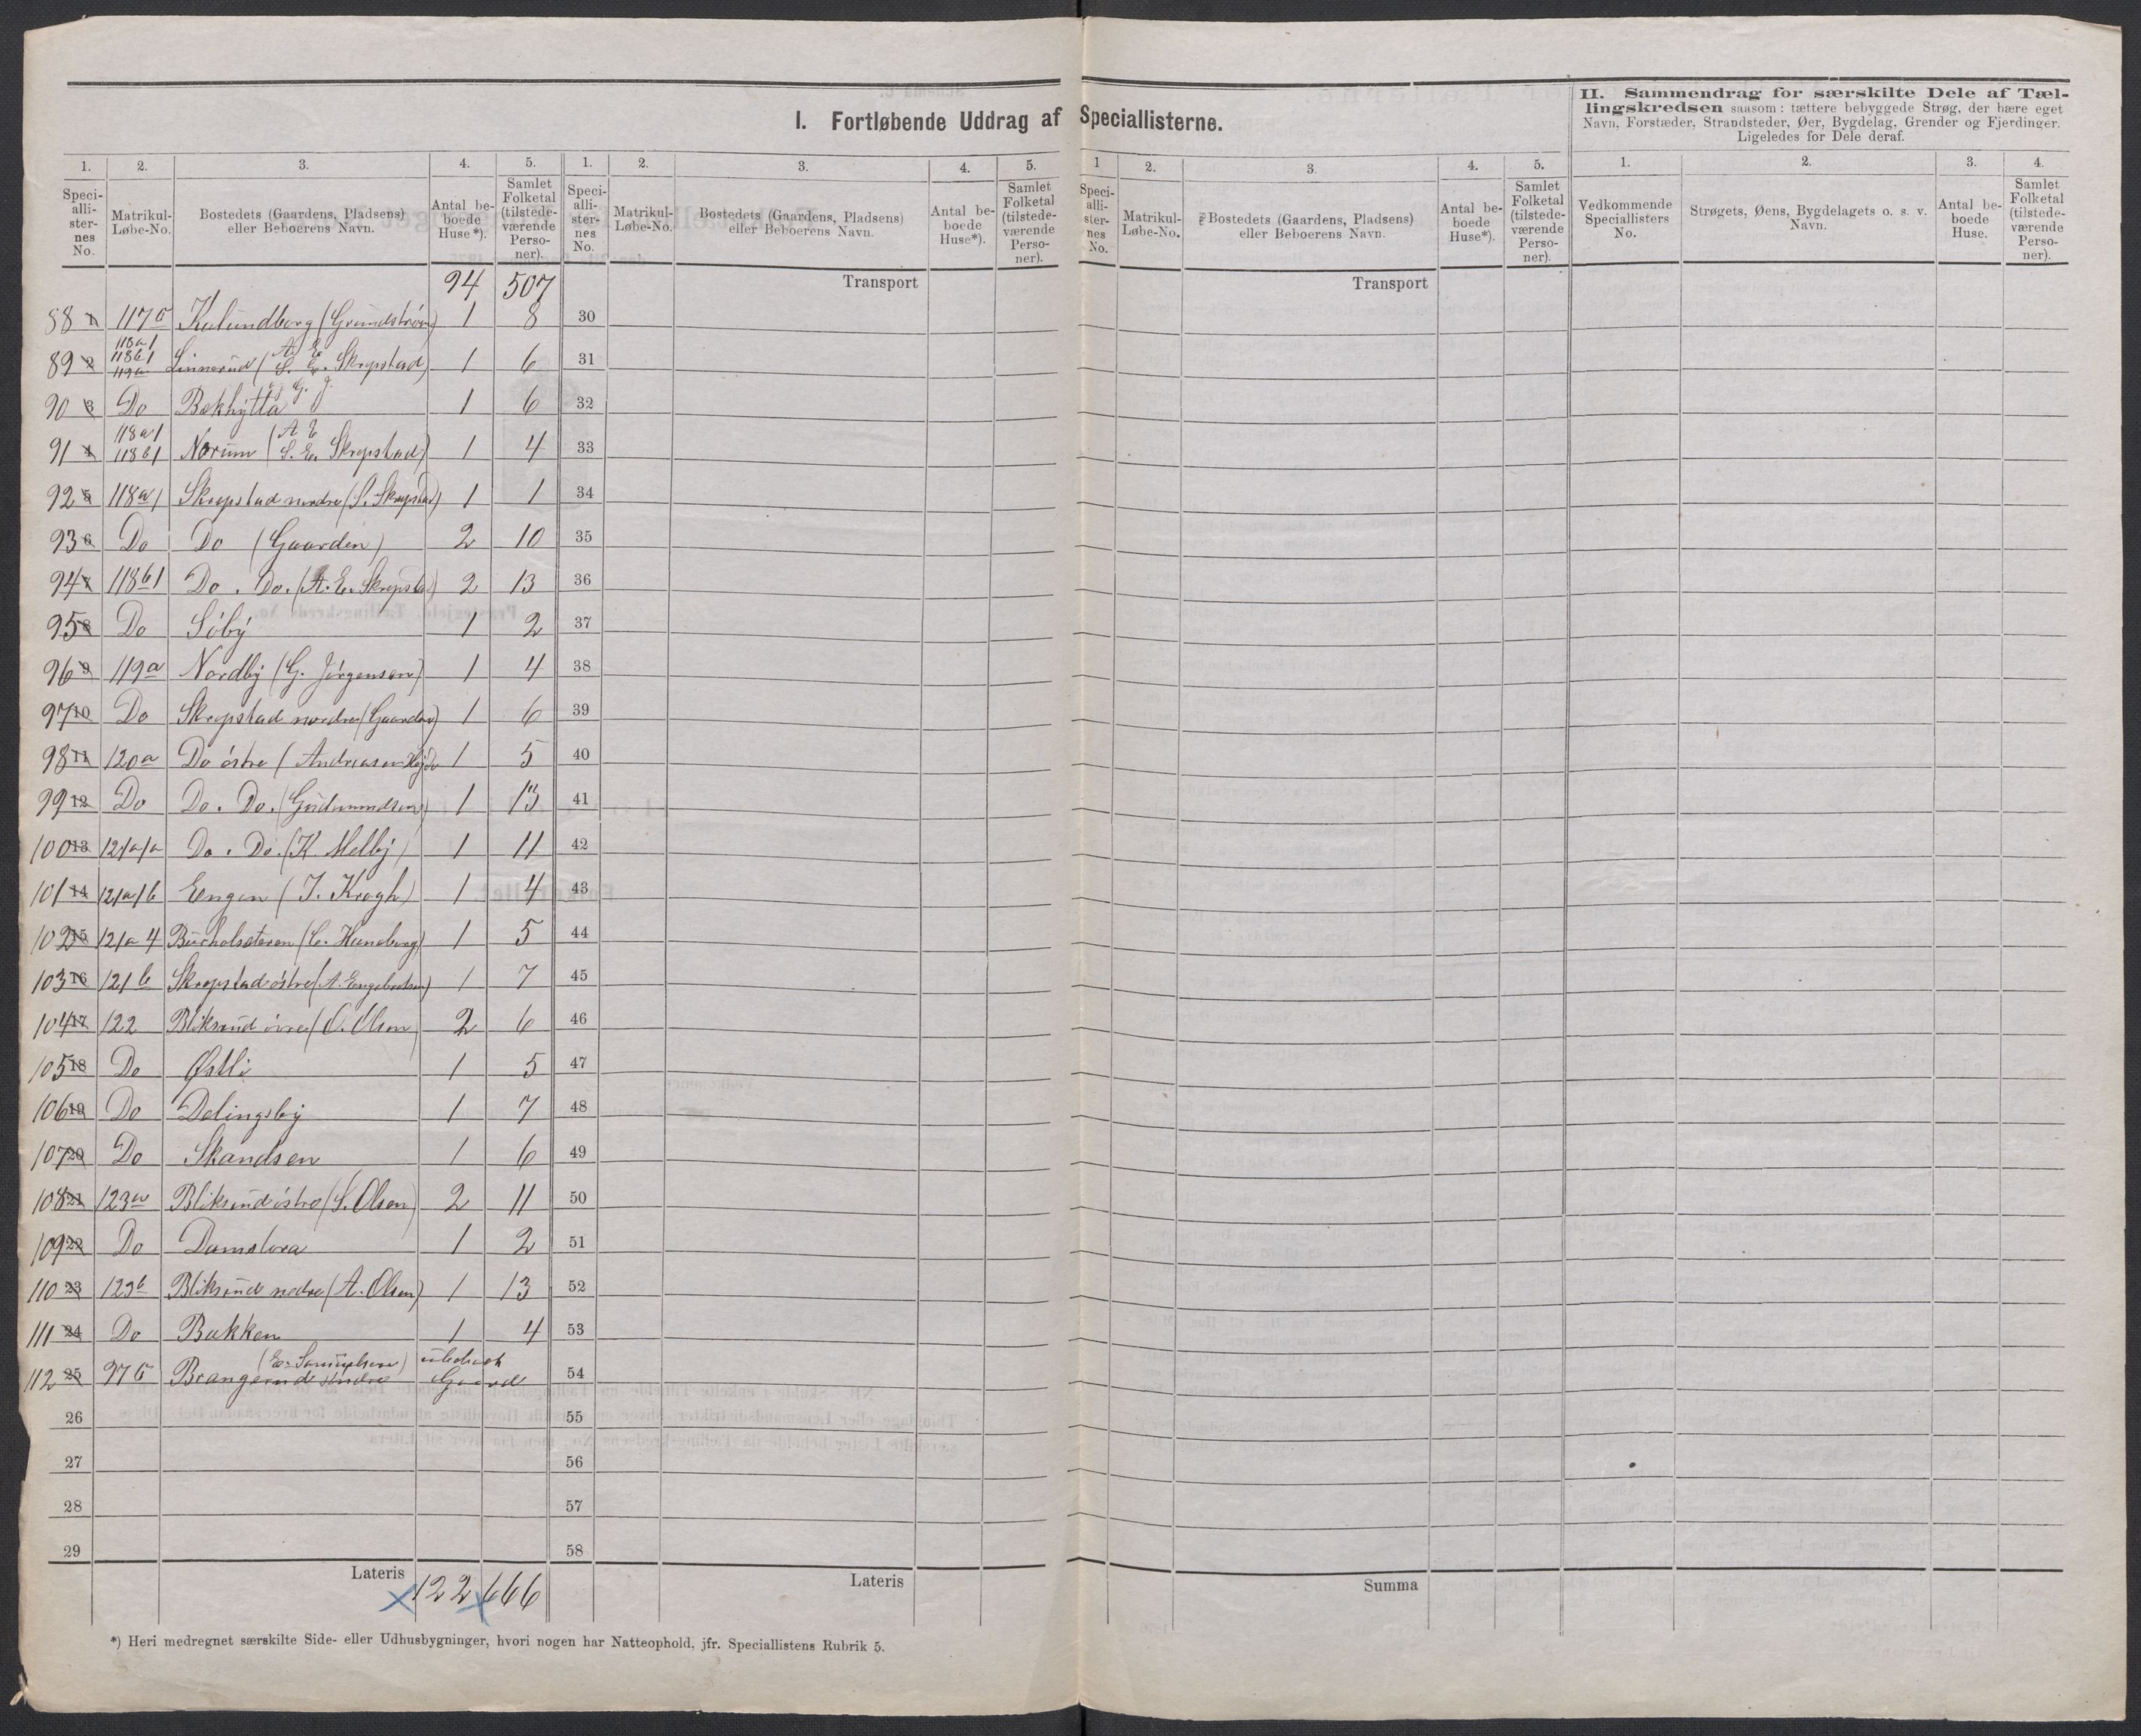 I. Fortløbende Uddrag af Speciallisterne.
II. Sammendrag for særskilte Dele af Tæl-
lingskredsen saasom: tættere bebyggede Strøg, der bære eget
Navn, Forstæder, Strandsteder, Øer, Bygdelag, Grender og Fjerdinger.
Ligeledes for Dele deraf.
1. 2. 3. 4. 5. 1. 2. 3. 4. 5. 1 2. 3. 4. 5. 1. 2. 3. 4.
Speci-alli-ster-nes No. Matrikul-Løbe-No. Bostedets (Gaardens, Pladsens) eller Beboerens Navn. Antal be-boede Huse*). Samlet Folketal (tilstede-værende Perso-ner).
Speci-alli-ster-nes No. Matrikul-Løbe-No. Bostedets (Gaardens, Pladsens) eller Beboerens Navn. Antal be-boede Huse*). Samlet Folketal (tilstede-værende Perso-ner).
Speci-alli-ster-nes No. Matrikul-Løbe-No. Bostedets (Gaardens, Pladsens) eller Beboerens Navn. Antal be-boede Huse*). Samlet Folketal (tilstede-værende Perso-ner).
Vedkommende Speciallisters No. Strøgets, Øens, Bygdelagets o. s. v. Navn. Antal be-boede Huse. Samlet Folketal (tilstede-værende Perso-ner).
94 507 Transport Transport
88 1 117b Kalundborg (Grundstrøm) 1 8 30
118a1
89 2 118b1 119a Linnerud (A. E. S. E. Skrepstad, 1 6 31
G. J.
90 3 Do Bækhytta 1 6 32
118a1 A E
91 4 118b1 Norum (S. E. Skrepstad) 1 4 33
92 5 118a1 Skrepstad nordre (S. Skrepstad) 1 1 34
93 6 Do Do (Gaarden) 2 10 35
94 7 118b1 Do. Do. (A. E. Skrepstad) 2 13 36
95 8 Do Söby 1 2 37
96 9 119a Nordby (G. Jörgensen) 1 4 38
97 10 Do Skrepstad nordre (Gaarden) 1 6 39
98 11 120a Do östre (Andreasen 1 5 40
99 12 Do Do. Do. (Gudmundsen) 1 13 41
100 13 121a1a Do. Do. (K. Melby) 1 11 42
101 14 121a1b Engen (J. Krogh) 1 4 43
102 15 121a4 (C. Haneborg) 1 5 44
103 16 121b Skrepstad östre (A. Engebretsen) 1 7 45
104 17 122 Bliksrud övre (O. Olsen) 2 6 46
105 18 Do Østli 1 5 47
106 19 Do Delingsby 1 7 48
107 20 Do Skandsen 1 6 49
108 21 123a Bliksrud östre (S. Olsen) 2 11 50
109 22 Do Damslora 1 2 51
110 23 123b Bliksrud nedre (A. Olsen) 1 13 52
111 24 Do Bakken 1 4 53
(E. Samuelsen) ubebodt
112 25 97b Brangerud söndre Gaard 54
26 55
27 56
28 57
29 58
Lateris 122 666 Lateris Summa
*) Heri medregnet særskilte Side- eller Udhusbygninger, hvori nogen har Natteophold, jfr. Speciallistens Rubrik 5.